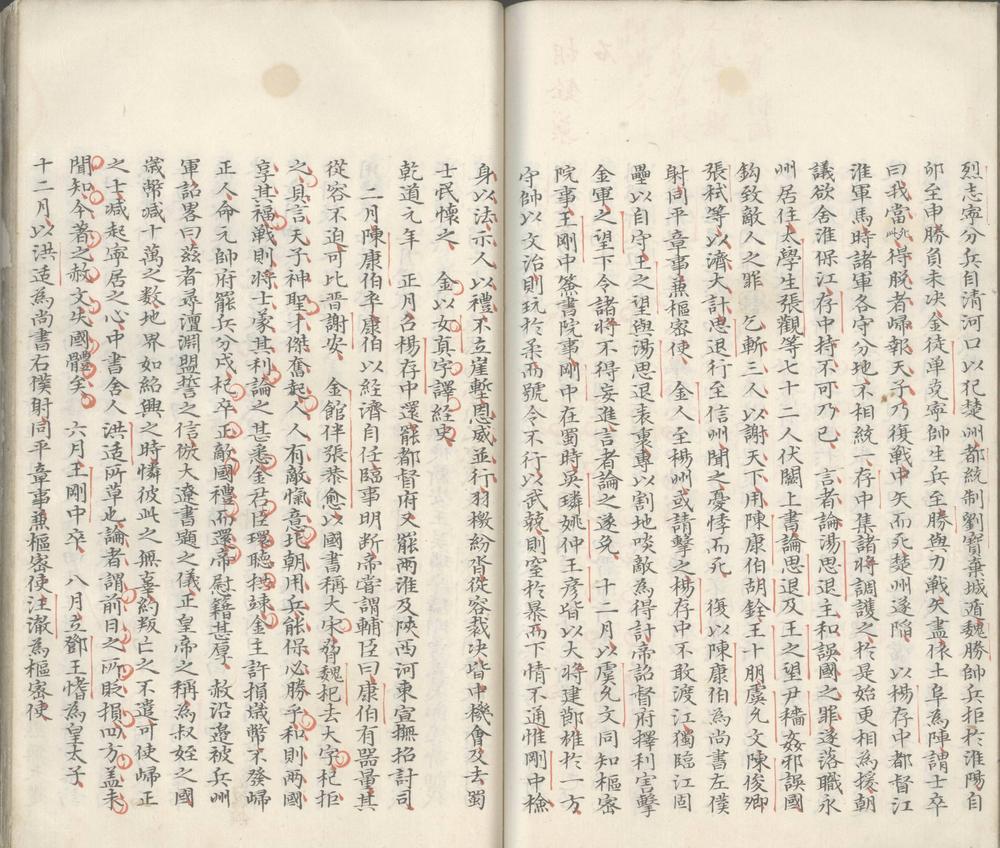 烈志寧分兵自清河口以犯楚州都統制劉寶棄城遁魏勝帥兵拒於淮陽自
卯至申勝負未决金徒單克寧帥生兵至勝與力戰矢盡依土阜為陣謂士卒
曰我當死此得脱者歸報天子乃復戰中矢而死楚州遂陷 以楊存中都督江
淮軍馬時諸軍各守分地不相統一存中集諸將調護之於是始更相為援朝
議欲舍淮保江存中持不可乃已 言者論湯思退主和誤國之罪遂落職永
州居住太學生張觀等七十二人伏闕上書論思退及王之望尹穡姦邪誤國
鈎致敵人之罪 乞斬三人以謝天下用陳康伯胡銓王十朋虞允文陳俊卿
張栻等以濟大計思退行至信州聞之憂悸而死 復以陳康伯為尚書左僕
射同平章事兼樞密使 金人至楊州或請擊之楊存中不敢渡江獨臨江固
壘以自守王之望與湯思退表裏專以割地啖敵為得計帝詔督府擇利害擊
金軍之望下令諸將不得妄進言者論之遂免 十二月以虞允文同知樞密
院事王剛中簽書院事剛中在蜀時吳璘姚仲王彦皆以大將建節雄於一方
守帥以文治則玩於柔而號令不行以武競則窒於暴而下情不通惟剛中檢
身以法示人以禮不立崖塹恩威並行羽檄紛沓從容裁决皆中機會及去蜀
士民懷之 金以女真字譯經史
乾道元年 正月召楊存中還罷都督府又罷兩淮及陝西河東宣撫招討司
二月陳康伯卒康伯以經濟自任臨事明断帝嘗謂輔臣曰康伯有器量其
從容不迫可比晋謝安 金館伴張恭愈以國書稱大宋脅魏杞去大字杞拒
之具言天子神聖才傑奮起人人有敵愾意北朝用兵能保必勝乎和則兩國
享其福戰則將士蒙其利論之甚悉金君臣環聽拱竦金主許損歲幣不發歸
正人命元帥府罷兵分戍杞卒正敵國禮而還帝慰藉甚厚 赦沿邊被兵州
軍詔畧曰兹者尋澶淵盟誓之信倣大遼書題之儀正皇帝之稱為叔姪之國
歲幣减十萬之数地界如紹興之時憐彼此之無辜約叛亡之不遣可使歸正
之士咸起寧居之心中書舍人洪适所草也論者謂前日之所貶損四方盖未
聞知今著之赦文失國體矣 六月王剛中卒 八月立鄧王愭為皇太子
十二月以洪适為尚書右僕射同平章事兼樞密使汪澈為樞密使